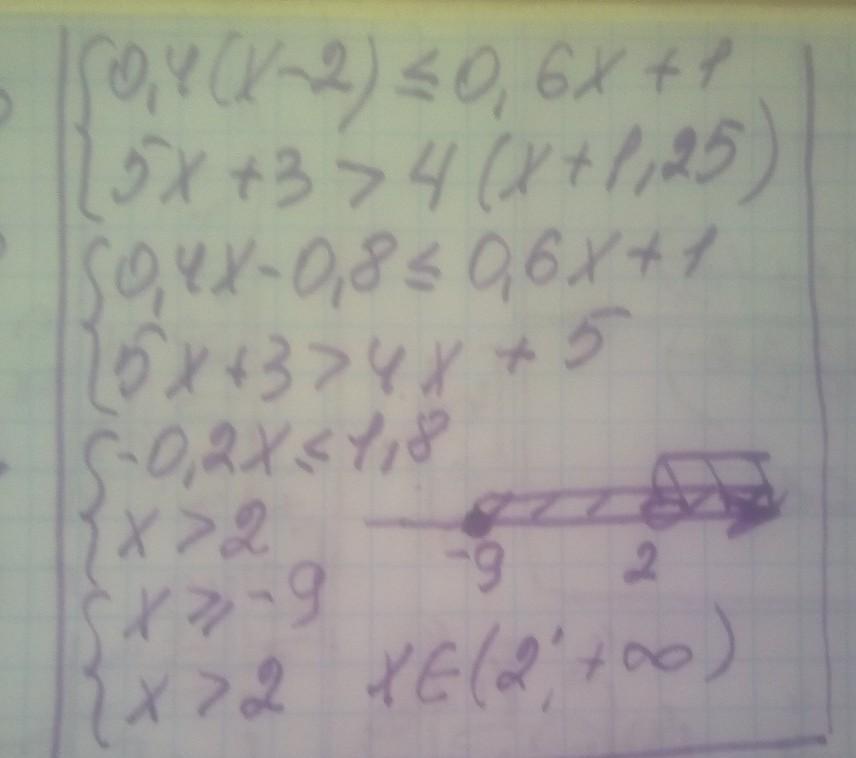 0,4(x-2) ≤ 0,6x+1
5x+3 > 4(x+1,25)
0,4x-0,8 ≤ 0,6x+1
5x+3 > 4x + 5
-0,2x ≤ 1,8
x > 2
-9 2
x ≥ -9
x > 2 x∈(2;+∞)